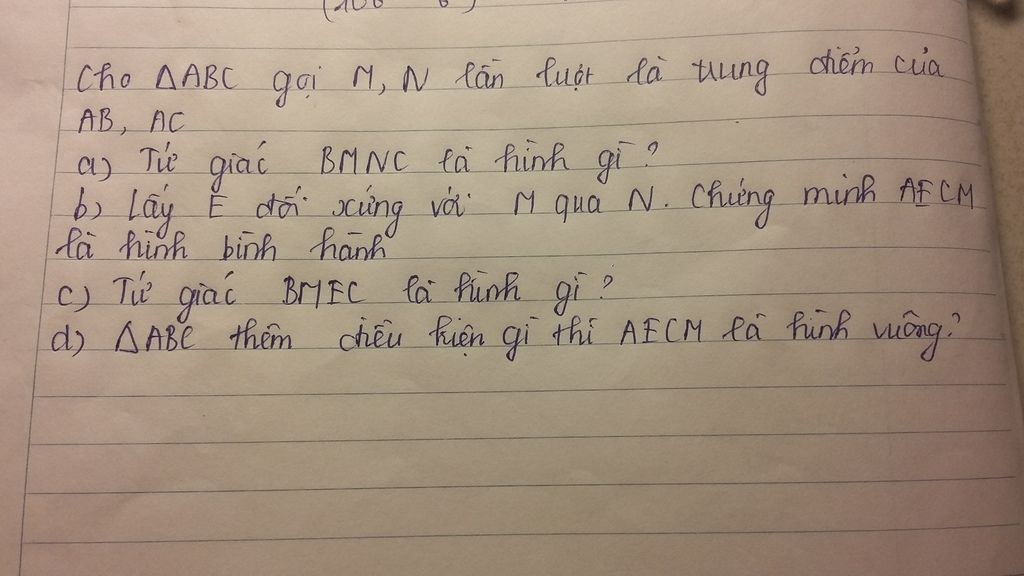 Cho ΔABC gọi M, N lần lượt là trung điểm của
AB, AC
a) Tứ giác BMNC là hình gì?
b) Lấy E đối xứng với M qua N. Chứng minh AECM
là hình bình hành
c) Tứ giác BMEC là hình gì?
d) ΔABC thêm điều kiện gì thì AECM là hình vuông?